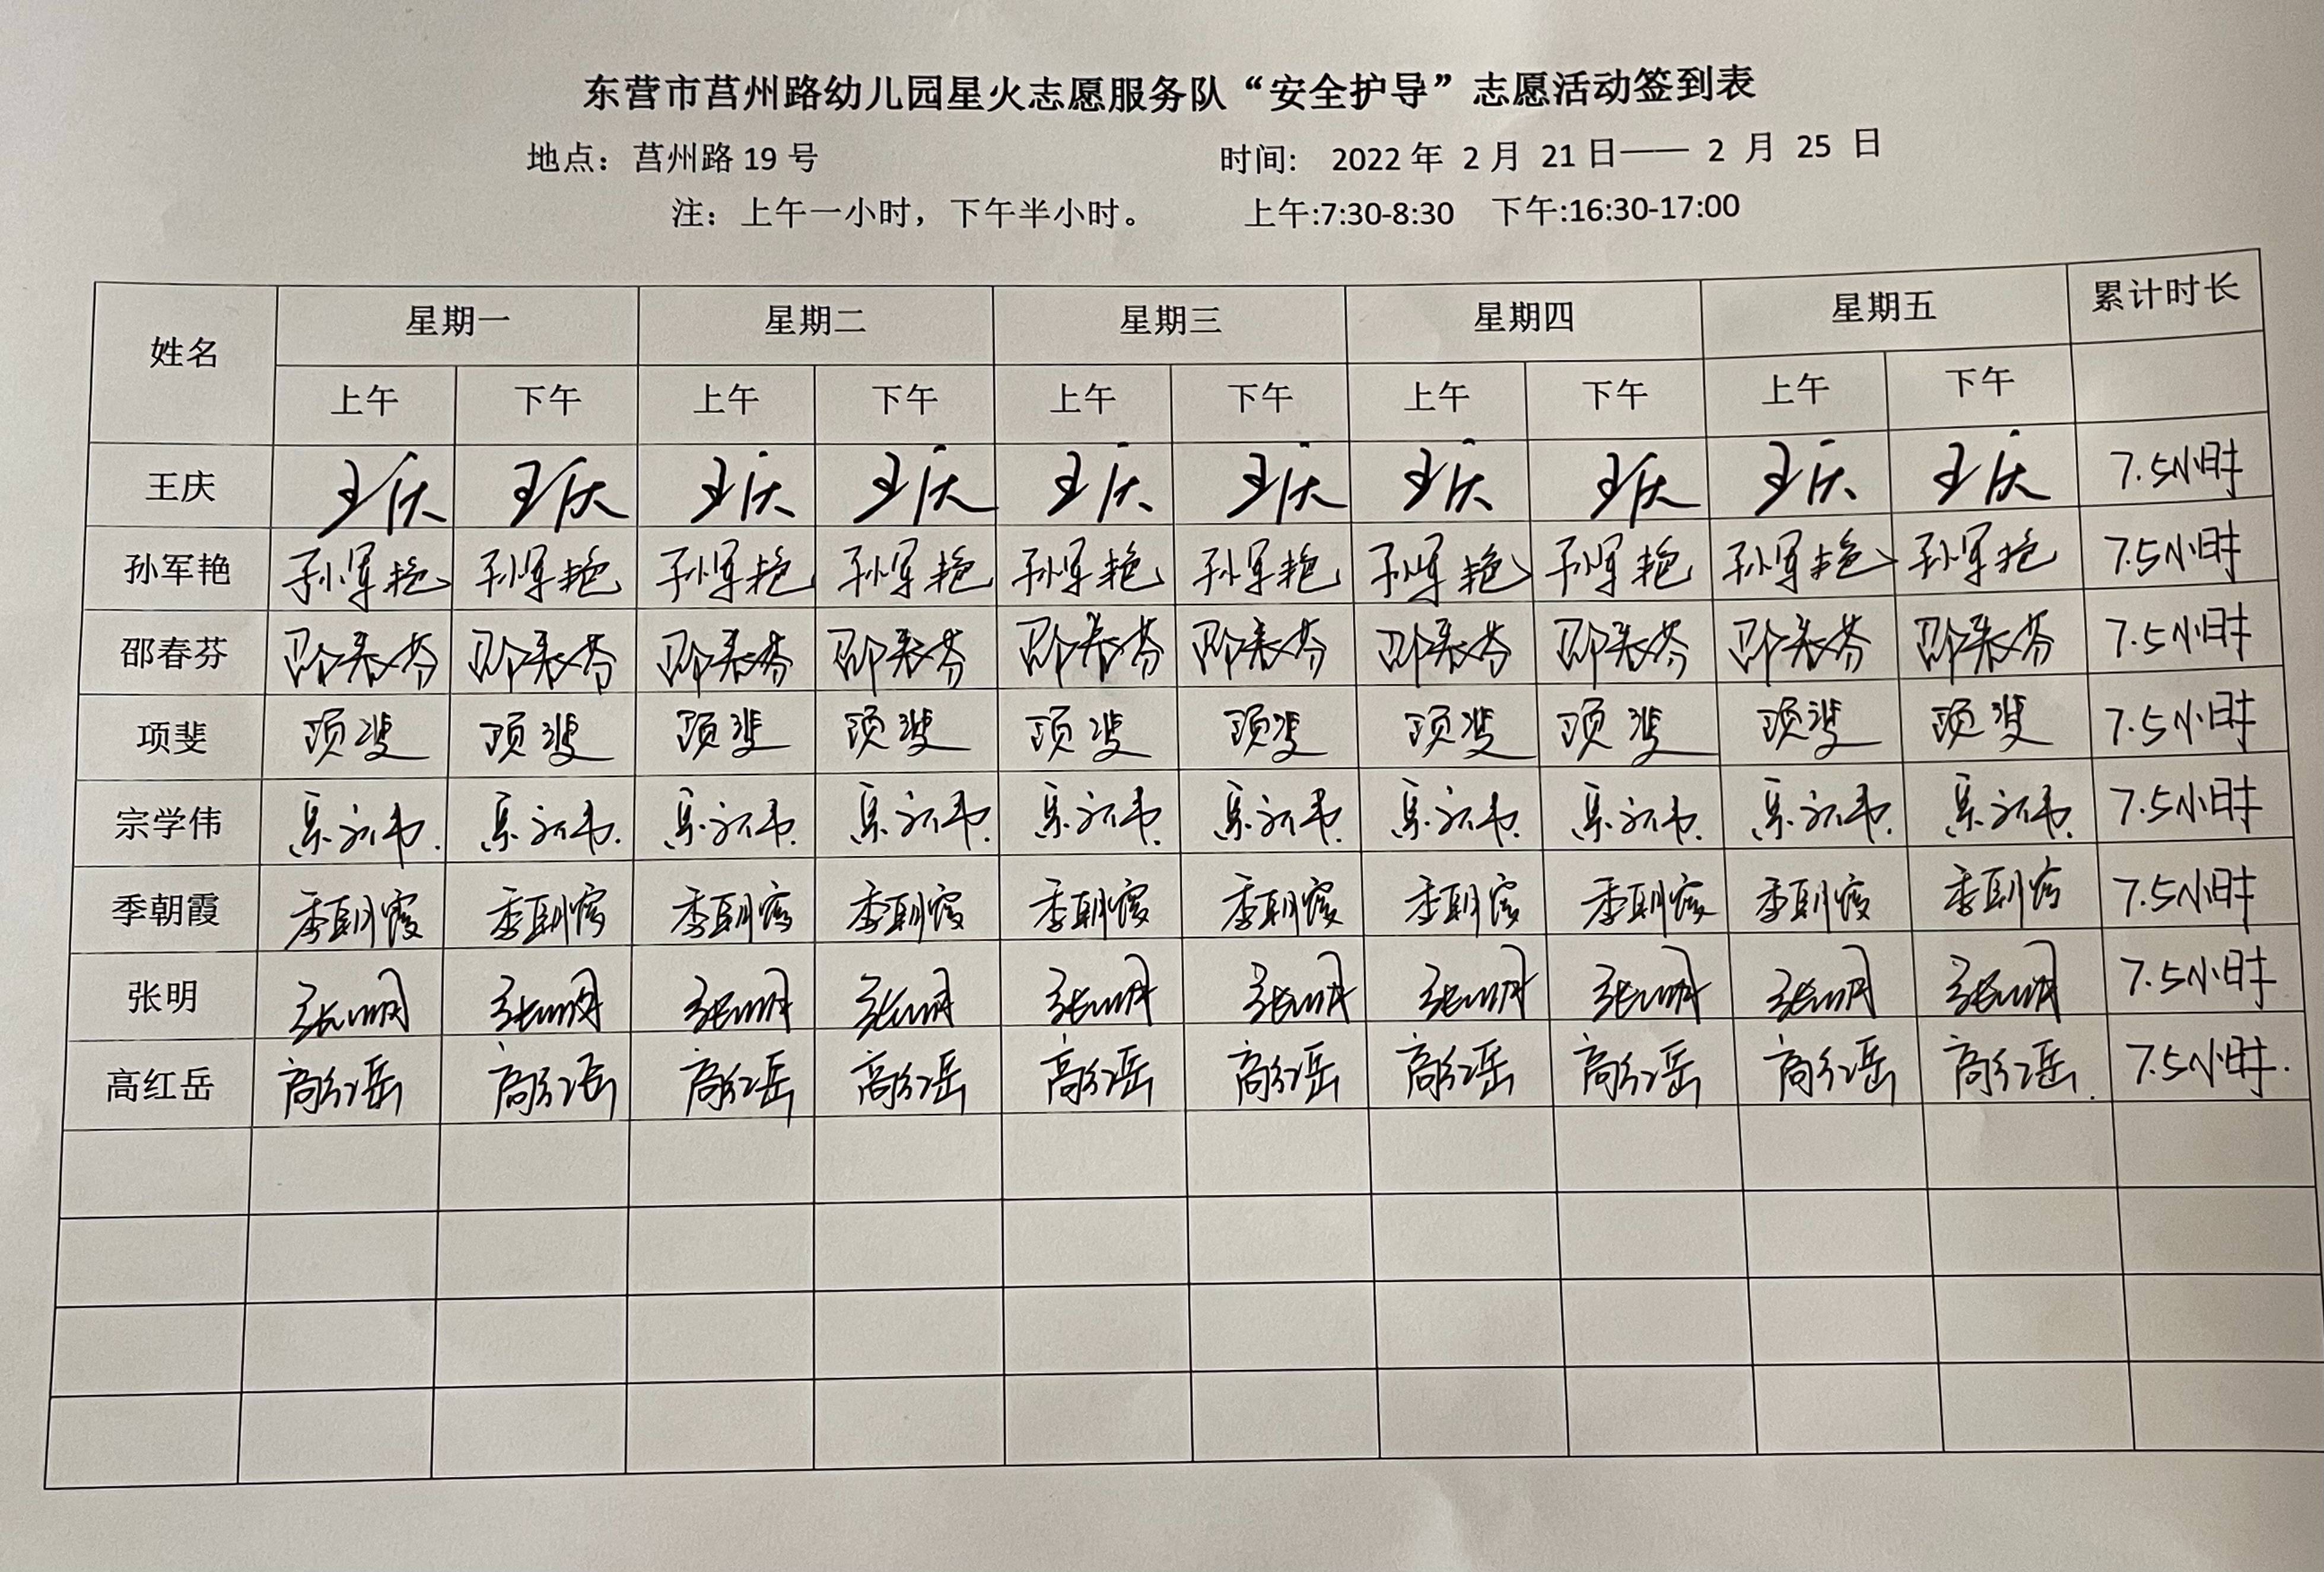 东营市莒州路幼儿园星火志愿服务队“安全护导”志愿活动签到表
地点：莒州路 19 号 时间： 2022 年 2 月 21 日—— 2 月 25 日
注：上午一小时，下午半小时。 上午:7:30-8:30 下午:16:30-17:00
姓名 星期一 星期二 星期三 星期四 星期五 累计时长
上午 下午 上午 下午 上午 下午 上午 下午 上午 下午
王庆 王庆 王庆 王庆 王庆 王庆 王庆 王庆 王庆 王庆 王庆 7.5小时
孙军艳 孙军艳 孙军艳 孙军艳 孙军艳 孙军艳 孙军艳 孙军艳 孙军艳 孙军艳 孙军艳 7.5小时
邵春芬 邵春芬 邵春芬 邵春芬 邵春芬 邵春芬 邵春芬 邵春芬 邵春芬 邵春芬 邵春芬 7.5小时
项斐 项斐 项斐 项斐 项斐 项斐 项斐 项斐 项斐 项斐 项斐 7.5小时
宗学伟 宗学伟. 宗学伟. 宗学伟. 宗学伟. 宗学伟. 宗学伟. 宗学伟. 宗学伟. 宗学伟. 宗学伟. 7.5小时
季朝霞 季朝霞 季朝霞 季朝霞 季朝霞 季朝霞 季朝霞 季朝霞 季朝霞 季朝霞 季朝霞 7.5小时
张明 张明 张明 张明 张明 张明 张明 张明 张明 张明 张明 7.5小时
高红岳 高红岳 高红岳 高红岳 高红岳 高红岳 高红岳 高红岳 高红岳 高红岳 高红岳. 7.5小时.